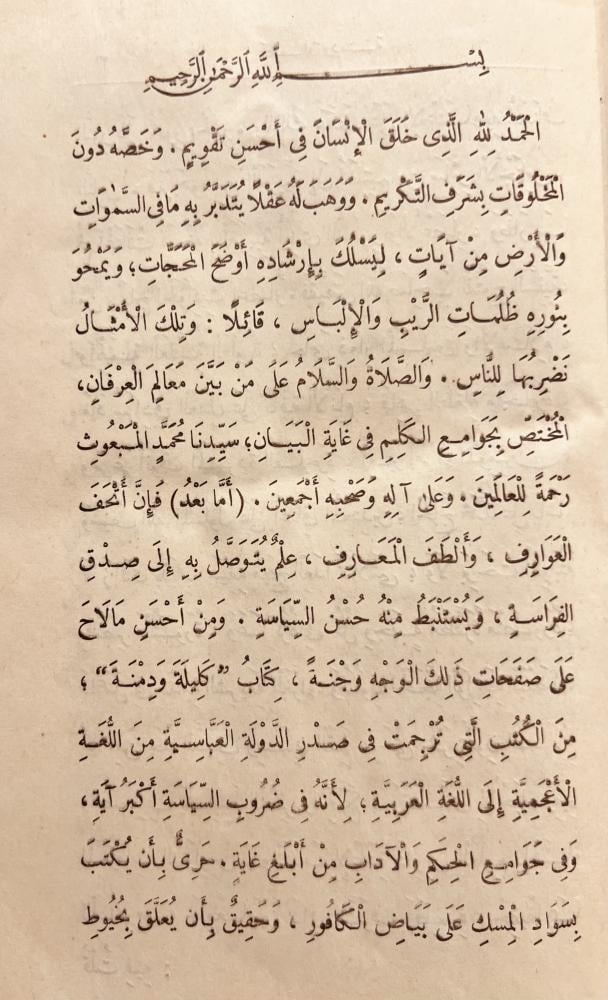 بِسْمِ ٱللَّهِ ٱلرَّحْمَٰنِ ٱلرَّحِيمِ
الْحَمْدُ لِلهِ الَّذِى خَلَقَ الْإِنْسَانَ فِى أَحْسَنِ تَقْوِيمٍ . وَخَصَّهُ دُونَ
الْمَخْلُوقَاتِ بِشَرَفِ التَّكْرِيمِ . وَوَهَبَ لَهُ عَقْلًا يُتَدَبَّرُ بِهِ مَا فِى السَّمٰوَاتِ
وَالْأَرْضِ مِنْ آيَاتٍ ، لِيَسْلُكَ بِإِرْشَادِهِ أَوْضَحَ الْمَحَجَّاتِ؛ وَيَمْحُوَ
بِنُورِهِ ظُلُمَاتِ الرَّيْبِ وَالْإِلْبَاسِ ، قَائِلًا : وَتِلْكَ الْأَمْثَالُ
نَضْرِبُهَا لِلنَّاسِ . وَالصَّلَاةُ وَالسَّلَامُ عَلَى مَنْ بَيَّنَ مَعَالِمَ الْعِرْفَانِ،
الْمُخْتَصِّ بِجَوَامِعِ الكَلِمِ فِى غَايَةِ الْبَيَانِ؛ سَيِّدِنَا مُحَمَّدٍ الْمَبْعُوثِ
رَحْمَةً لِلْعَالَمِينَ . وَعَلَى آلِهِ وَصَحْبِهِ أَجْمَعِينَ . (أَمَّا بَعْدُ) فَإِنَّ أَتْحَفَ
الْعَوَارِفِ ، وَأَلْطَفَ الْمَعَارِفِ ، عِلْمٌ يُتَوَصَّلُ بِهِ إِلَى صِدْقِ
الفِرَاسَةِ ، وَيُسْتَنْبَطُ مِنْهُ حُسْنُ السِّيَاسَةِ . وَمِنْ أَحْسَنِ مَا لَاحَ
عَلَى صَفَحَاتِ ذَلِكَ الْوَجْهِ وَجْنَةً ، كِتَابُ ”كَلِيلَةَ وَدِمْنَةَ“ ؛
مِنَ الْكُتُبِ الَّتِى تُرْجِمَتْ فِى صَدْرِ الدَّوْلَةِ الْعَبَّاسِيَّةِ مِنَ اللُّغَةِ
الْأَعْجَمِيَّةِ إِلَى اللُّغَةِ الْعَرَبِيَّةِ؛ لِأَنَّهُ فِى ضُرُوبِ السِّيَاسَةِ أَكْبَرُ آيَةٍ،
وَفِى جَوَامِعِ الْحِكَمِ وَالْآدَابِ مِنْ أَبْلَغِ غَايَةٍ . حَرِىٌّ بِأَن يُكْتَبَ
بِسَوَادِ الْمِسْكِ عَلَى بَيَاضِ الْكَافُورِ ، وَحَقِيقٌ بِأَن يُعَلَّقَ بِخُيُوطِ